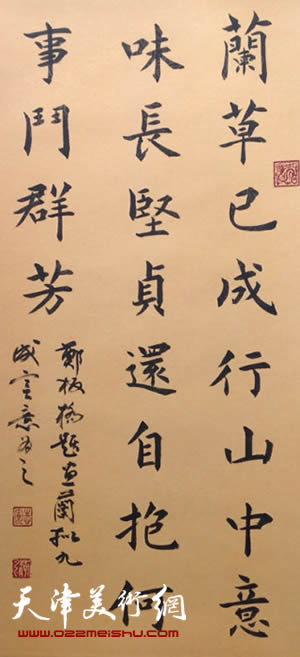 蘭草已成行山中意
味長堅貞還自抱何
事鬥群芳
鄭板橋題画蘭
成言意為之
天津美術網
www.022meishu.com